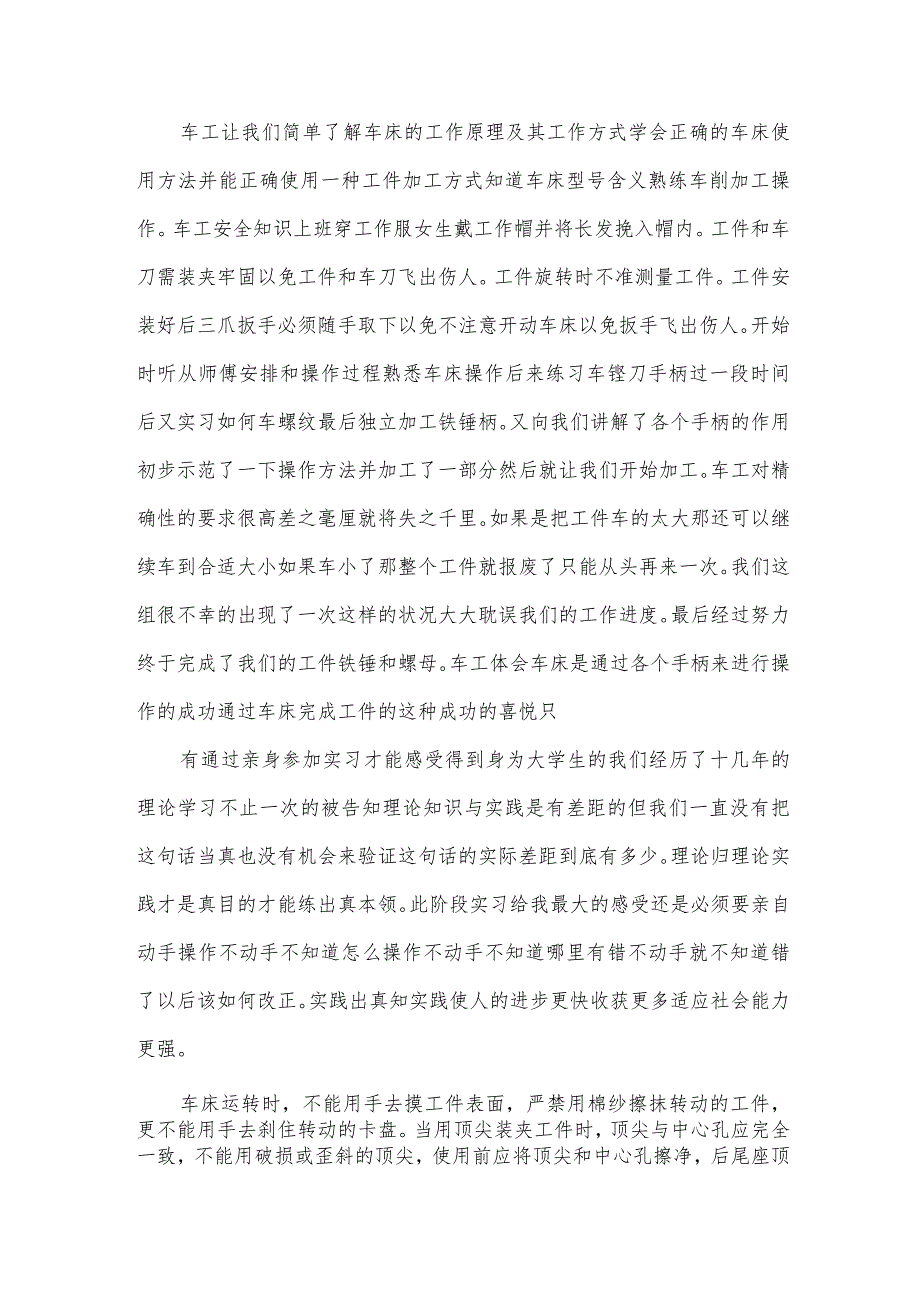 车工让我们简单了解车床的工作原理及其工作方式学会正确的车床使
用方法并能正确使用一种工件加工方式知道车床型号含义熟练车削加工操
作。车工安全知识上班穿工作服女生戴工作帽并将长发挽入帽内。工件和车
刀需装夹牢固以免工件和车刀飞出伤人。工件旋转时不准测量工件。工件安
装好后三爪扳手必须随手取下以免不注意开动车床以免扳手飞出伤人。开始
时听从师傅安排和操作过程熟悉车床操作后来练习车镗刀手柄过一段时间
后又实习如何车螺纹最后独立加工铁锤柄。又向我们讲解了各个手柄的作用
初步示范了一下操作方法并加工了一部分然后就让我们开始加工。车工对精
确性的要求很高差之毫厘就将失之千里。如果是把工件车的太大那还可以继
续车到合适大小如果车小了那整个工件就报废了只能从头再来一次。我们这
组很不幸的出现了一次这样的状况大大耽误我们的工作进度。最后经过努力
终于完成了我们的工件铁锤和螺母。车工体会车床是通过各个手柄来进行操
作的成功通过车床完成工件的这种成功的喜悦只
有通过亲身参加实习才能感受得到身为大学生的我们经历了十几年的
理论学习不止一次的被告知理论知识与实践是有差距的但我们一直没有把
这句话当真也没有机会来验证这句话的实际差距到底有多少。理论归理论实
践才是真目的才能练出真本领。此阶段实习给我最大的感受还是必须要亲自
动手操作不动手不知道怎么操作不动手不知道哪里有错不动手就不知道错
了以后该如何改正。实践出真知实践使人的进步更快收获更多适应社会能力
更强。
车床运转时，不能用手去摸工件表面，严禁用棉纱擦抹转动的工件，
更不能用手去刹住转动的卡盘。当用顶尖装夹工件时，顶尖与中心孔应完全
一致，不能用破损或歪斜的顶尖，使用前应将顶尖和中心孔擦净，后尾座顶